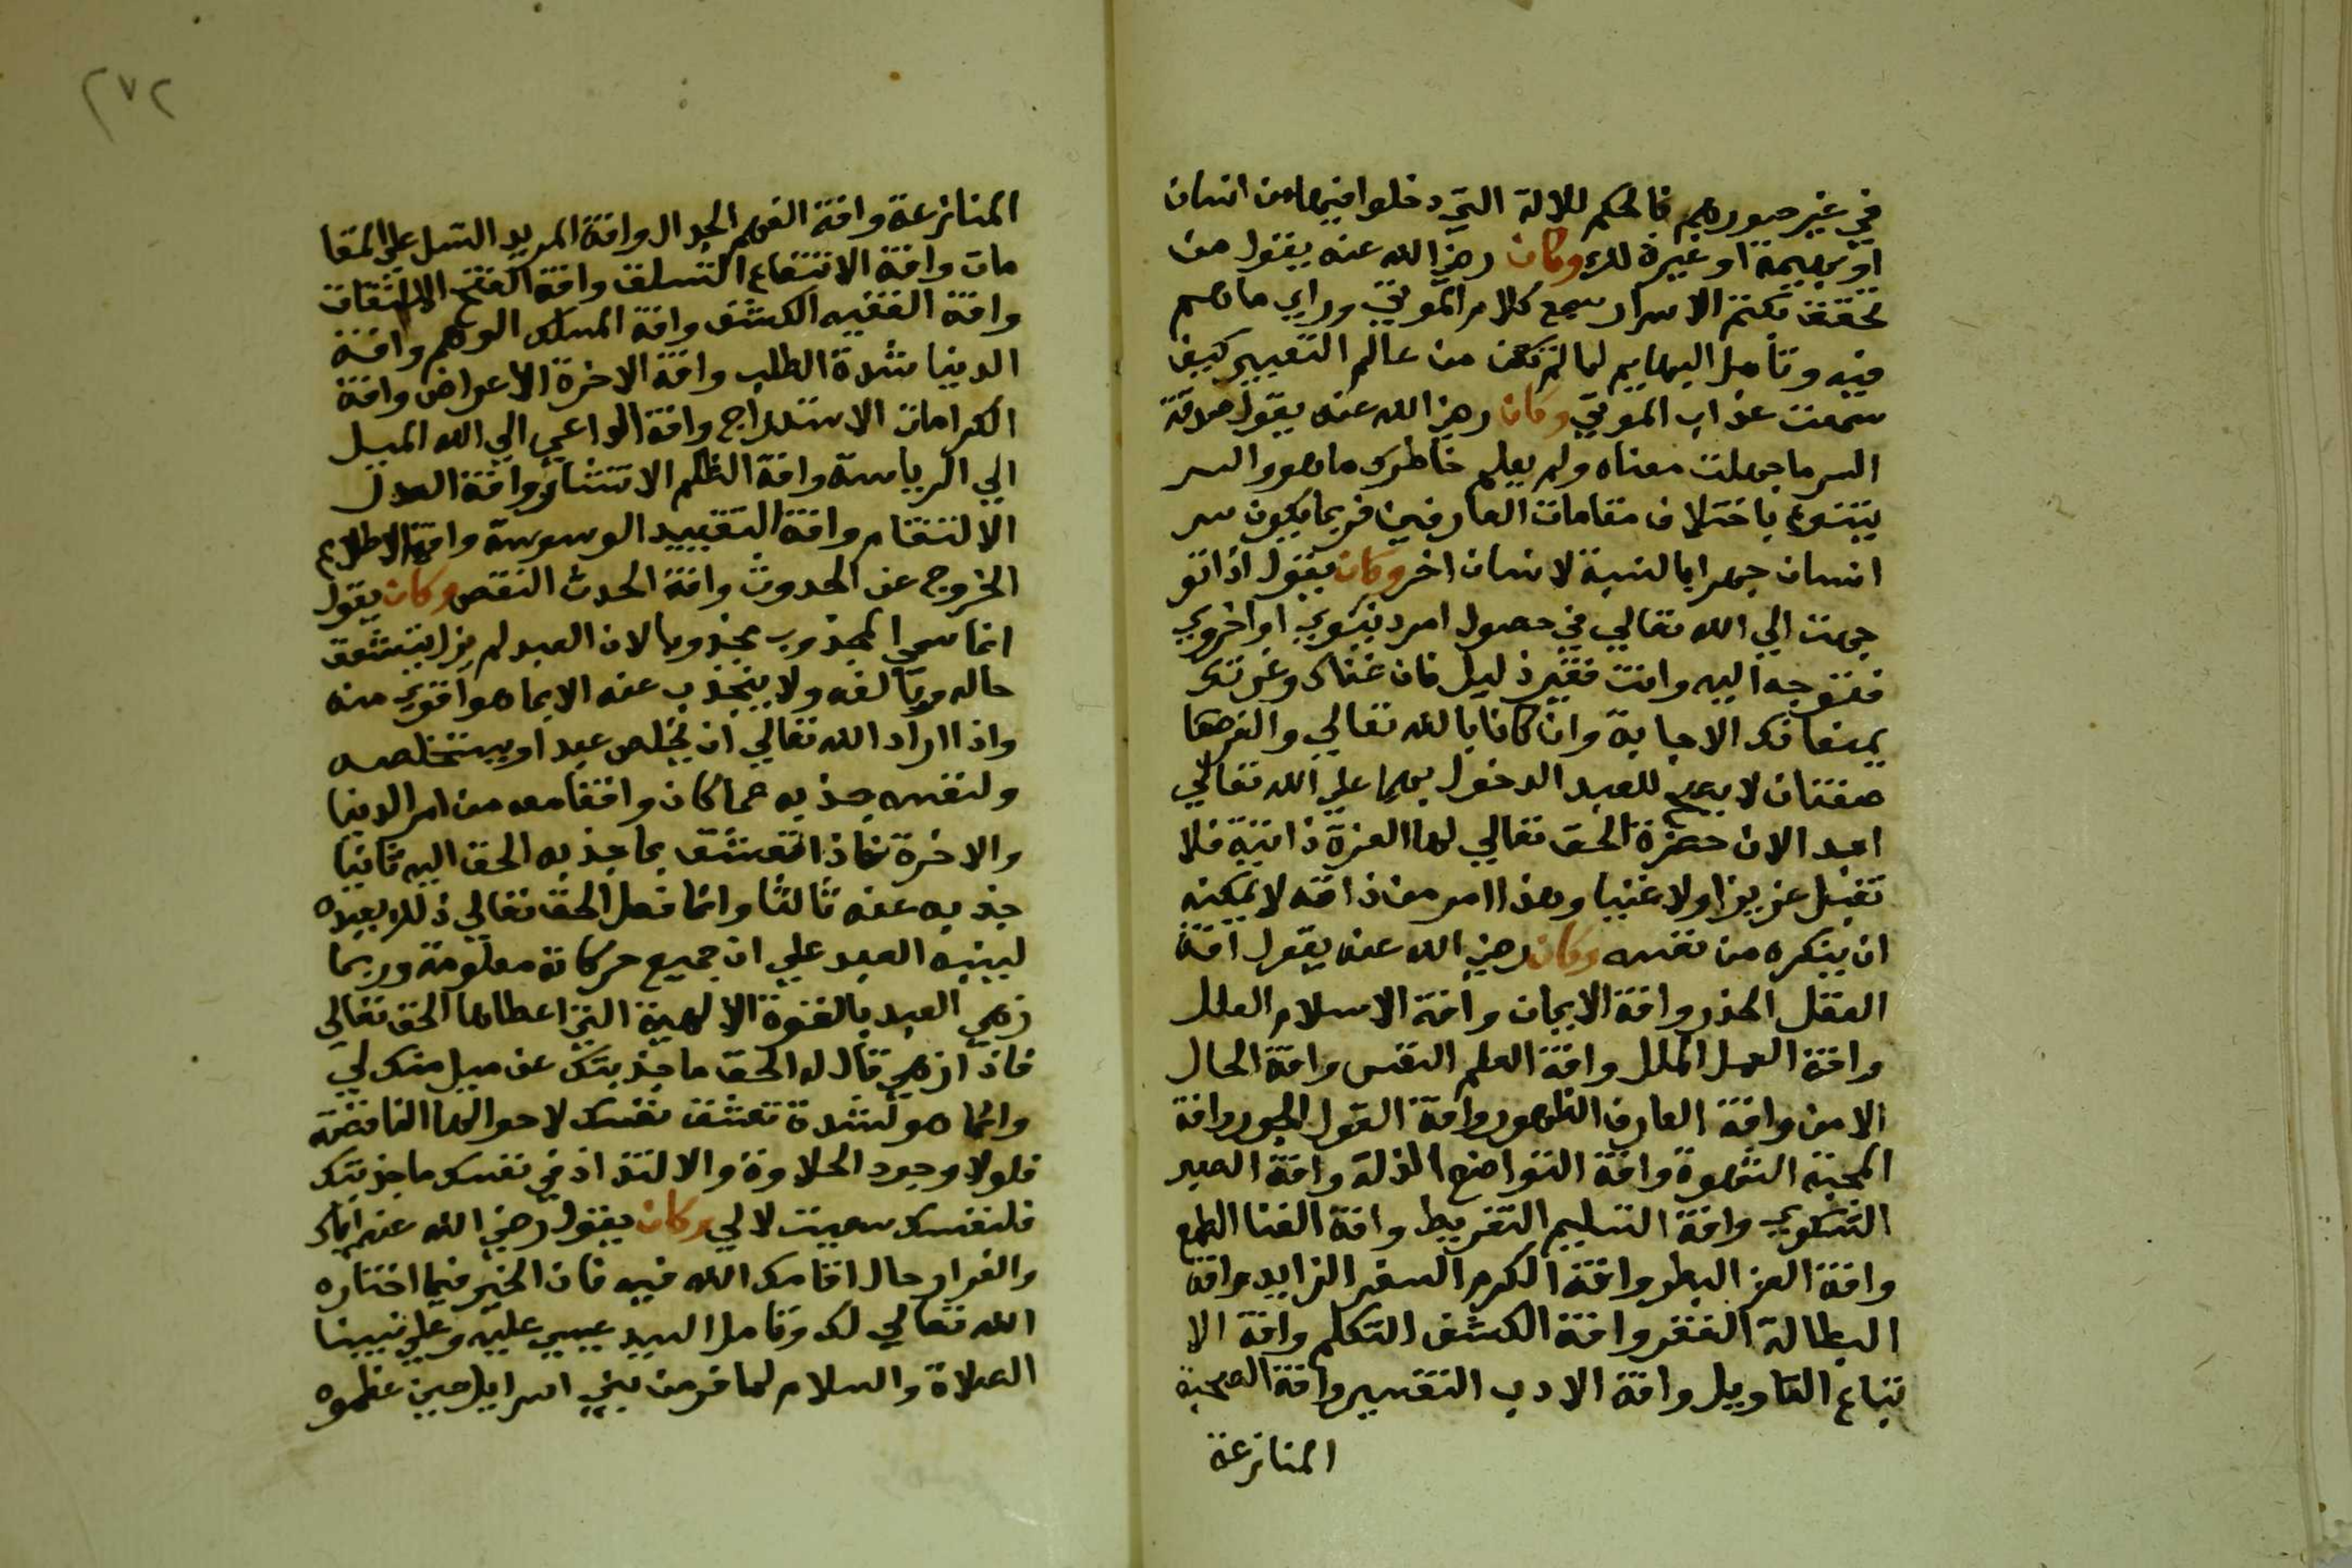 في غير صورهم فالحكم للالة التي دخلوا فيها من انسان
او بهيمة او غيره لك وكان رضي الله عنه يقول من
تحقق بكتم الاسرار سمع كلام الموتي وراي ما هم
فيه وتأمل البهايم لما لم تكن من عالم التعبير كيف
سمعت عذاب الموتي وكان رضي الله عنه يقول
السر ما جهلت معناه ولم يعلم خاطرك ما هو والسر
يتنوع باختلاف مقامات العارفين فربما يكون سر
انسان جهرا بالنسبة لانسان اخر وكان يقول اذا تو
جهت الي الله تعالي في حصول امر دنيوي او اخروي
فتوجه اليه وانت فقير ذليل فان غناك وعزتك
يمنعانك الاجابة وان كانا بالله تعالي والغرهما
صفتان لا يصح للعبد الدخول بهما علي الله تعالي
ابدا لان حضرة الحق تعالي لها العزة ذاتية فلا
تقبل عزيزا ولا غنيا وهذا امر من ذاقه لا يمكنه
ان ينكره من نفسه وكان رضي الله عنه يقول آفة
العقل الحذر وافة الايمان وافة الاسلام العلل
وافة العمل الملل وافة العلم النفس وافة الحال
الامن وافة العارف الظهور وافة القول الجور وافة
المحبة الشهوة وافة التواضع المذلة وافة الصبر
الشكوي وافة التسليم التفريط وافة الغنا الطمع
وافة العز البطر وافة الكرم السفر الزايد وافة
البطالة الفقر وافة الكشف التكلم وافة الا
تباع التاويل وافة الادب التفسير وافة الصحبة
المنازعة
٢٧٢
المنازعة وافة الفهم الجدال وافة المريد التسل علي المقا
مات وافة الانتفاع التسلق وافة الفتح الالتفات
وافة الفقيه الكشف وافة المسلك الوهم وافة
الدنيا شدة الطلب وافة الاخرة الاعراض وافة
الكرامات الاستدراج وافة الداعي الي الله الميل
الي الرياسة وافة الظلم الانتشار وافة العدل
الالنتقام وافة التقييد الوسوسة وافة الاطلاع
الخروج عن الحدوث وافة الحدث النقص وكان يقول
انما سمي المجذوب مجذوبا لان العبد لم يزل يتعشق
حاله ويتألفه ولا ينجذب عنه الا بما هو اقوي منه
واذا اراد الله تعالي ان يخلص عبدا ويستخلصه
ولنفسه جذبه عما كان واقفا معه من امر الدنيا
والاخرة فاذا تعشق بما جذبه الحق اليه ثانيا
جذبه عنه ثالثا وانما فعل الحق تعالي ذلك بعبده
لينبه العبد علي ان جميع حركاته معلومة وربما
زهي العبد بالقوة الالهية التي اعطاها الحق تعالي
فاذا زهي قال له الحق ما جذبتك عن ميل منك لي
وانما هو لشدة تعشق نفسك لاحوالها الناقصة
فلولا وجود الحلاوة والالتذاذ في نفسك ما جذبتك
فلنفسك سعيت لا لي وكان يقول رضي الله عنه اياك
والفرار حال اقامك الله فيه فان الخير فيما اختاره
الله تعالي لك وتامل السيد عيسي عليه وعلي نبينا
الصلاة والسلام لما فر من بني اسرايل حين عظموه